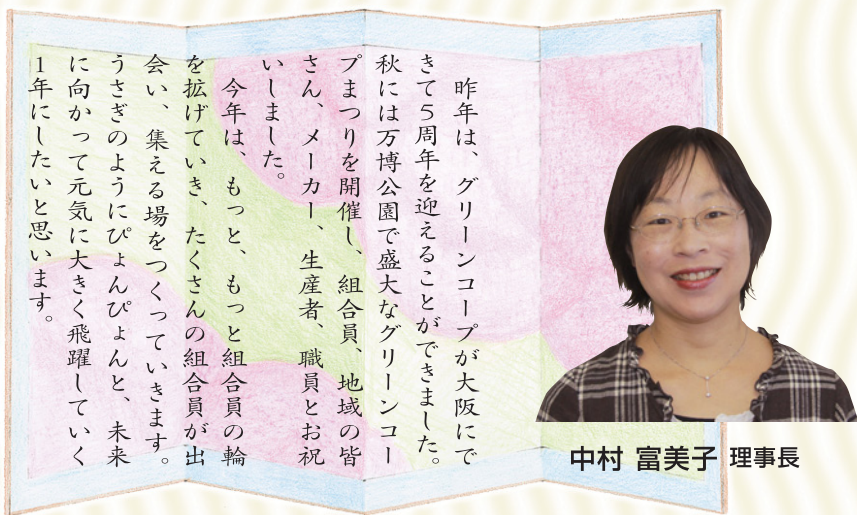 昨年は、グリーンコープが大阪にで
きて5周年を迎えることができました。
秋には万博公園で盛大なグリーンコー
プまつりを開催し、組合員、地域の皆
さん、メーカー、生産者、職員とお祝
いしました。
今年は、もっと、もっと組合員の輪
を拡げていき、たくさんの組合員が出
会い、集える場をつくっていきます。
うさぎのようにぴょんぴょんと、未来
に向かって元気に大きく飛躍していく
1年にしたいと思います。
中村 富美子 理事長